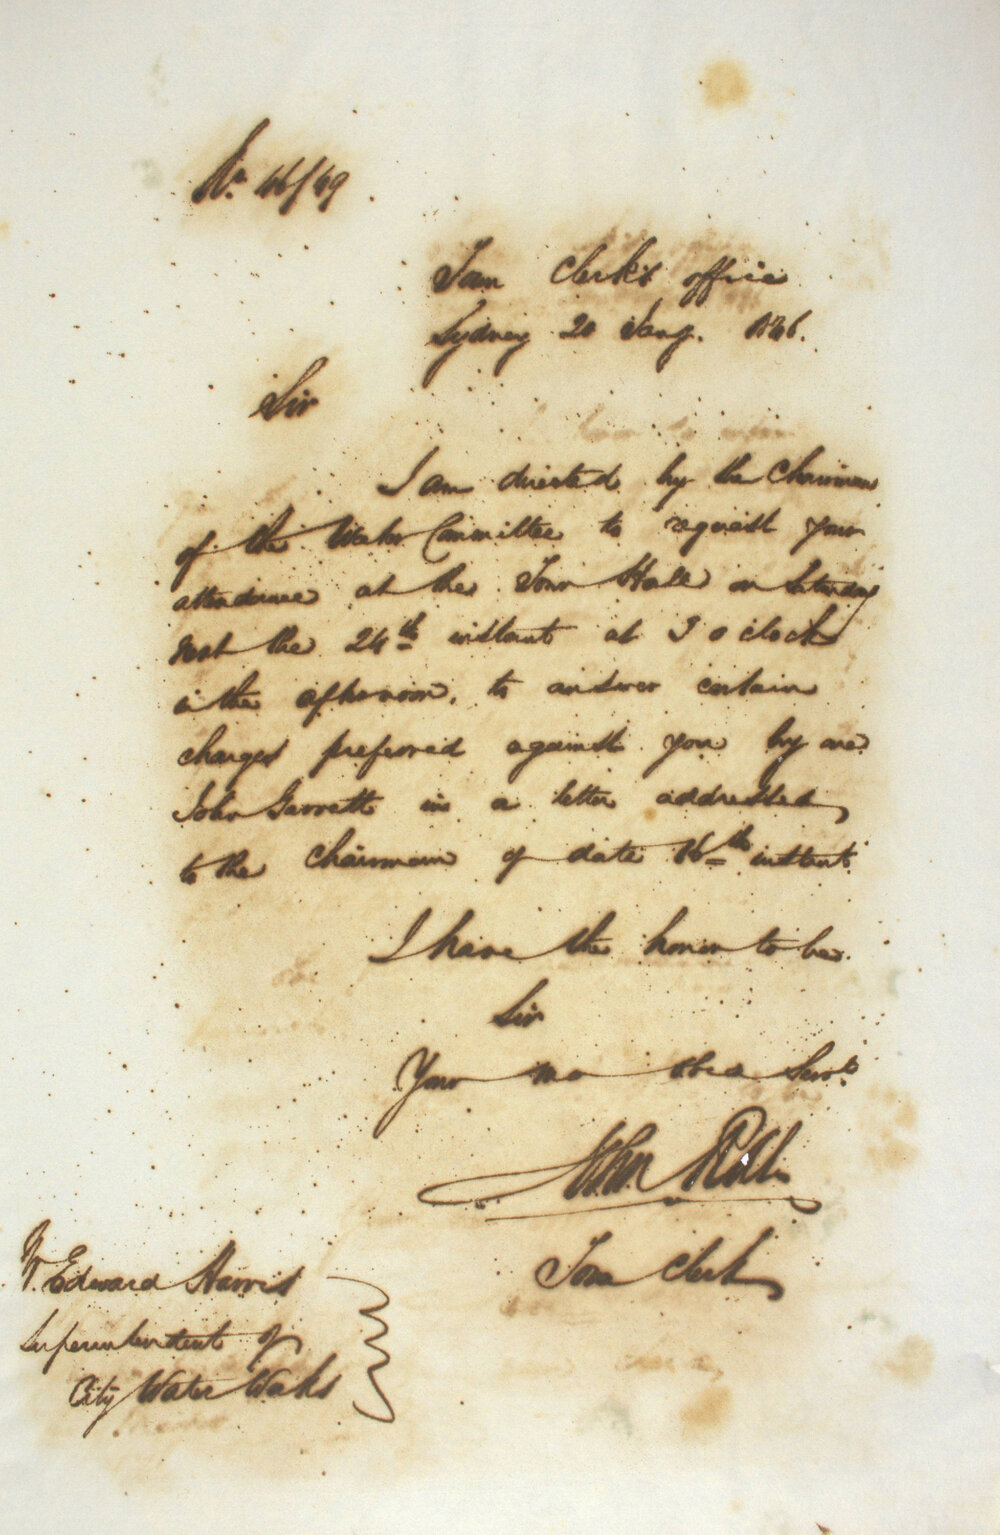 No. 46/49
Town Clerk's office
Sydney 20 Jany. 1846.
Sir
I am directed by the Chairman
of the Water Committee to request your
attendance at the Town Hall on Saturday
next the 24th instant at 3 o clock
in the afternoon, to answer certain
charges preferred against you by one
John Garrett in a letter addressed
to the Chairman of date 16th instant.
I have the honor to be.
Sir
Your mo obed Servt.
John Rbll
Town Clerk
Mr. Edward Harris
Superintendent of
City Water Works